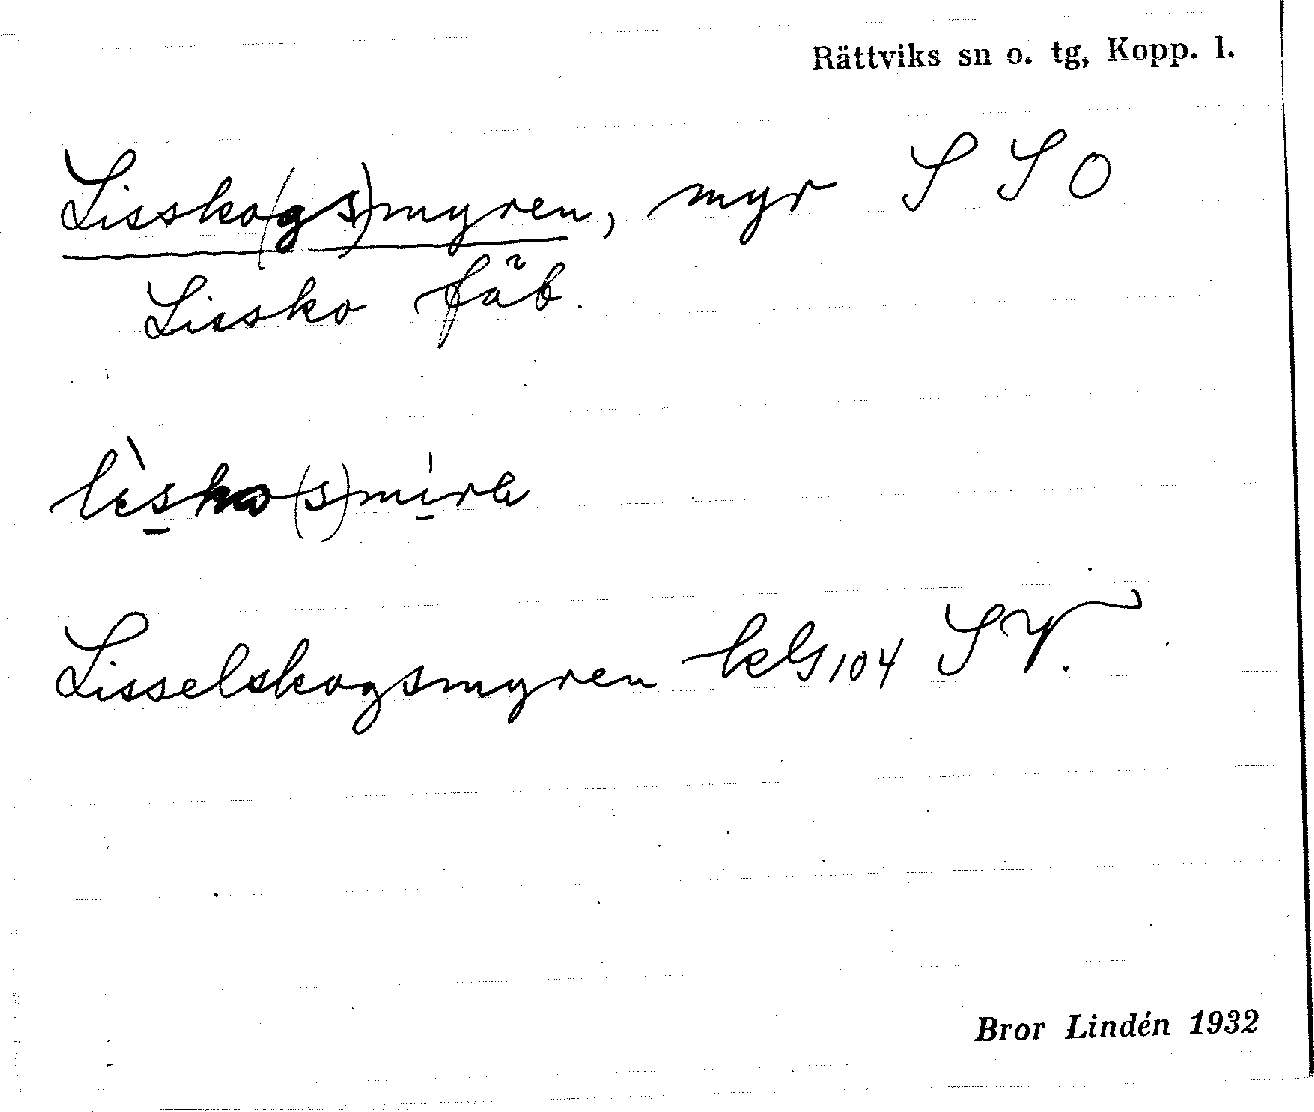 Rättviks sn o. tg, Kopp. l.
Lissko(gs)myren, myr S S O
Lissko fäb.
Lisselskogsmyren S V.
Bror Lindén 1932